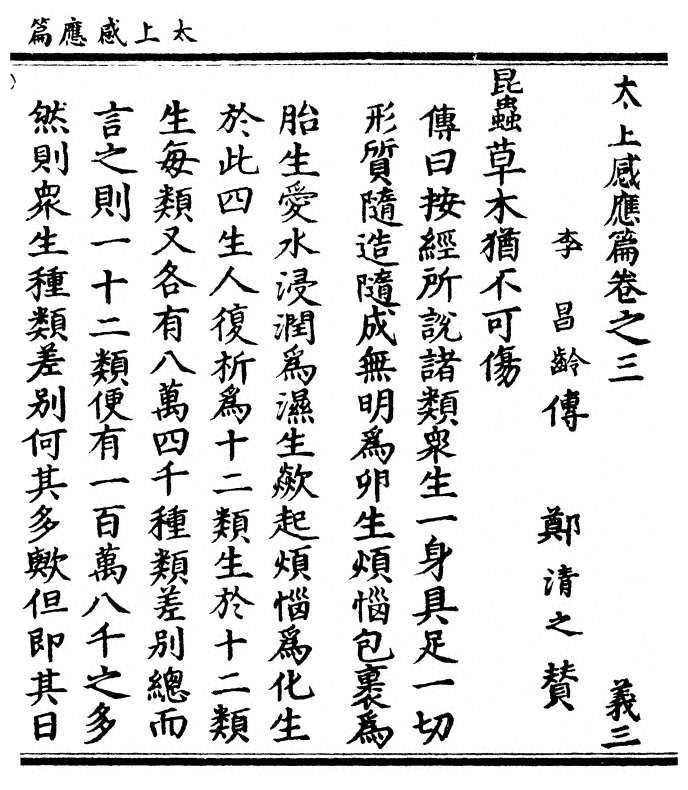 太上感應篇
太上感應篇卷之三 義三
李昌齡傳 鄭清之贊
昆蟲草木猶不可傷
傳曰按經所說諸類衆生一身具足一切
形質隨造隨成無明爲卵生煩惱包裹爲
胎生愛水浸潤爲濕生歘起煩惱爲化生
於此四生人復析爲十二類生於十二類
生每類又各有八萬四千種類差別總而
言之則一十二類便有一百萬八千之多
然則衆生種類差別何其多歟但即其日